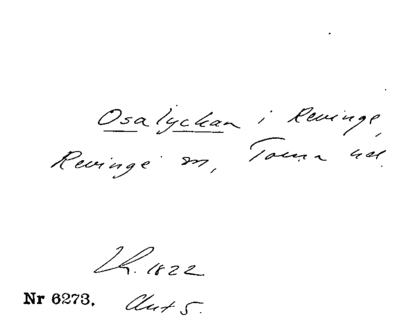 Osalyckan i Revinge,
Revinge sn, Torna hd.
LR. 1822
Nr 6273. Akt 5.